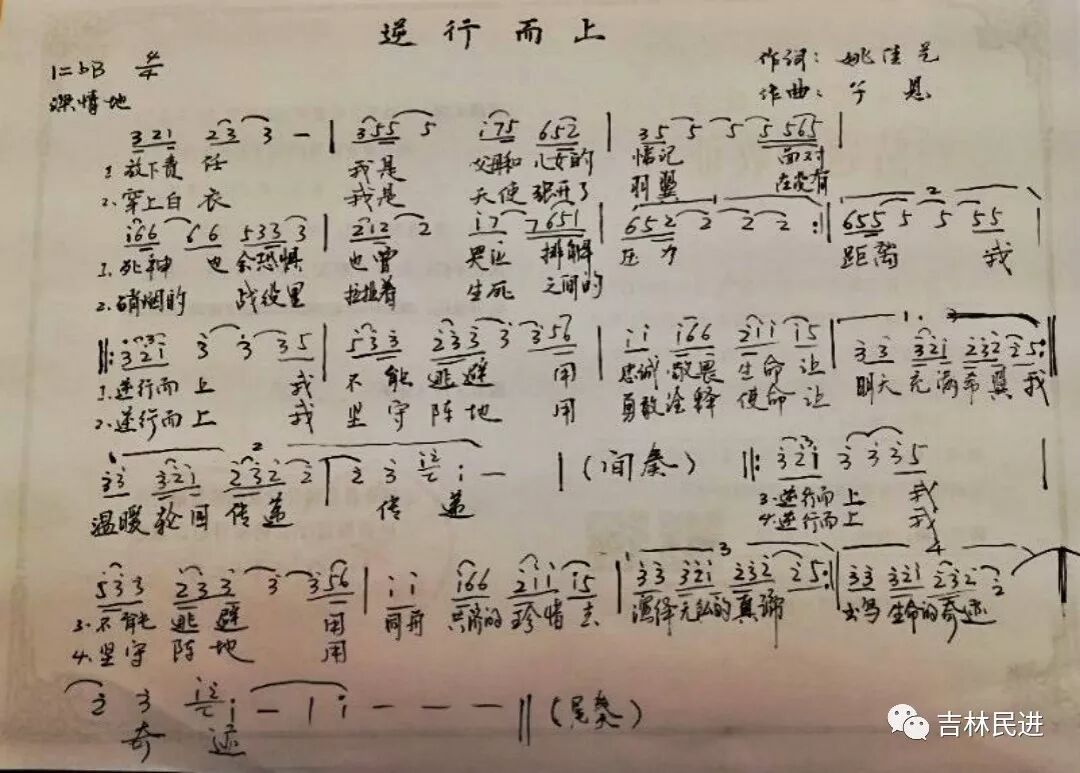 逆行而上
1=bB 4/4
作词：姚佳
深情地
作曲：
321 23 3 — | 355 5 i75 652 | 35 5 5 5 565 |
1. 放下责任 我是 父母和儿女的 惦记 面对
2. 穿上白衣 我是 天使张开了 羽翼 在没有
i66 66 533 3 | 212 2 i7 7651 | 652 2 2 2 :|| 655 5 5 55 |
1. 死神 也会恐惧 也曾 哭泣 排解 压力 距离 我
2. 硝烟的 战役里 拉扯着 生死 之间的
||: 321 3 3 35 | 533 233 3 356 | ii i66 2ii i5 | 33 321 232 25 :||
1. 逆行而上 我 不能逃避 用 忠诚敬畏 生命 让 明天充满希冀 我
2. 逆行而上 我 坚守阵地 用 勇敢诠释 使命 让
33 321 232 2 | 2 3 i — | (间奏) ||: 321 3 3 35 |
温暖轮回传递 传递
3. 逆行而上 我
4. 逆行而上 我
533 233 3 356 | ii i66 2ii i5 | 33 321 232 25 :|| 33 321 232 2
3. 不能逃避 用 同舟共济的珍惜 去 演绎无私的真谛 书写生命的奇迹
4. 坚守阵地 用
2 3 i — | i — — — || (尾奏)
奇迹
吉林民进